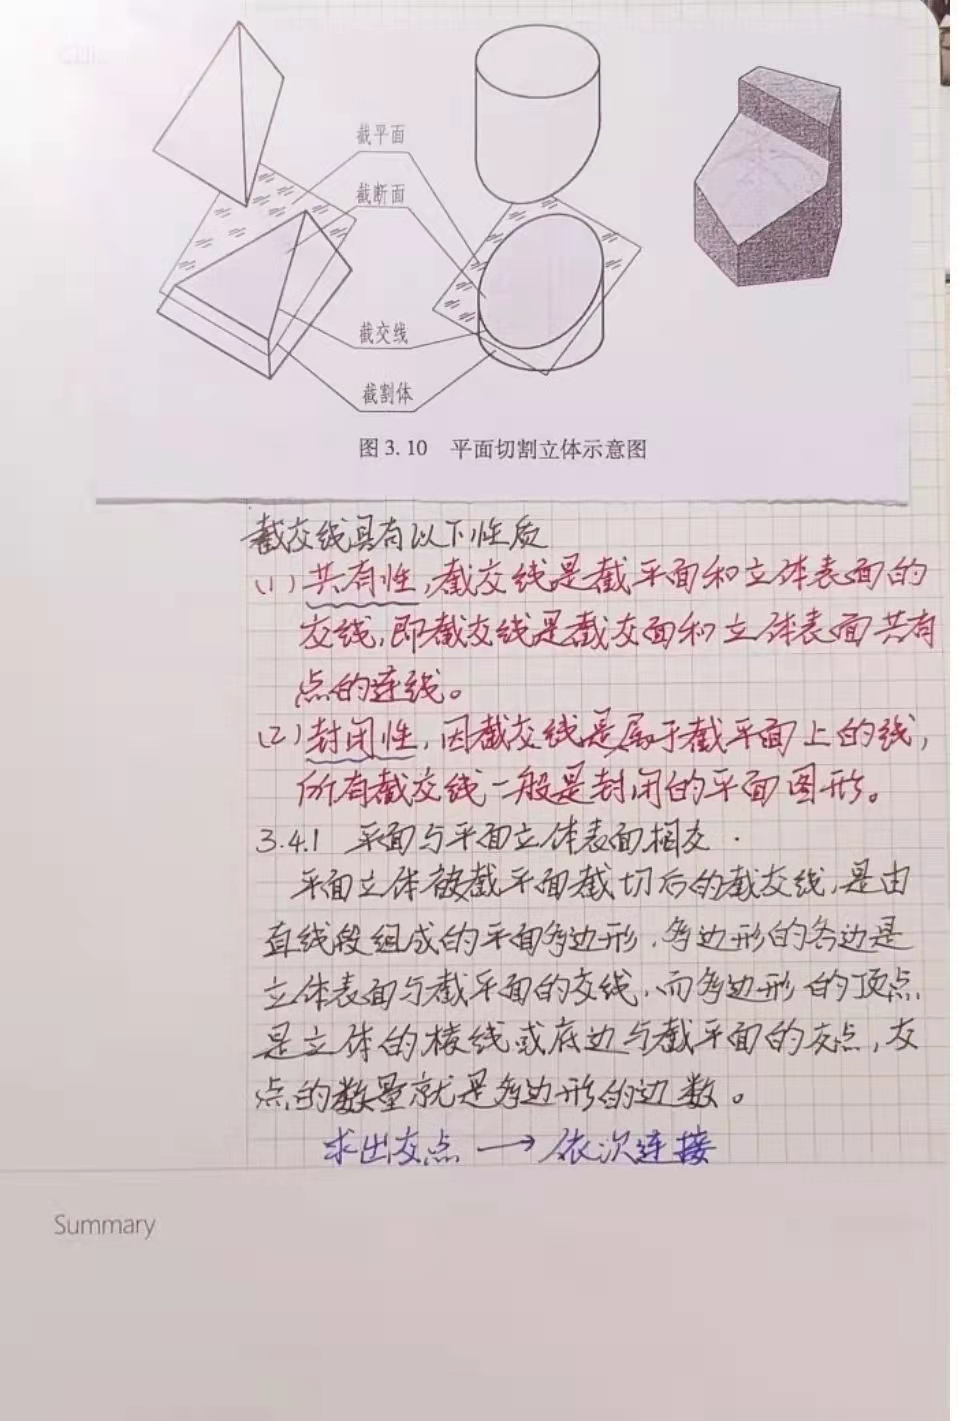 截平面
截断面
截交线
截割体
图3.10 平面切割立体示意图
截交线具有以下性质
(1) 共有性,截交线是截平面和立体表面的
交线,即截交线是截交面和立体表面共有
点的连线。
(2) 封闭性,因截交线是属于截平面上的线,
所有截交线一般是封闭的平面图形。
3.4.1 平面与平面立体表面相交.
平面立体被截平面截切后的截交线,是由
直线段组成的平面多边形.多边形的各边是
立体表面与截平面的交线,而多边形的顶点
是立体的棱线或底边与截平面的交点,交
点的数量就是多边形的边数。
求出交点 → 依次连接
Summary